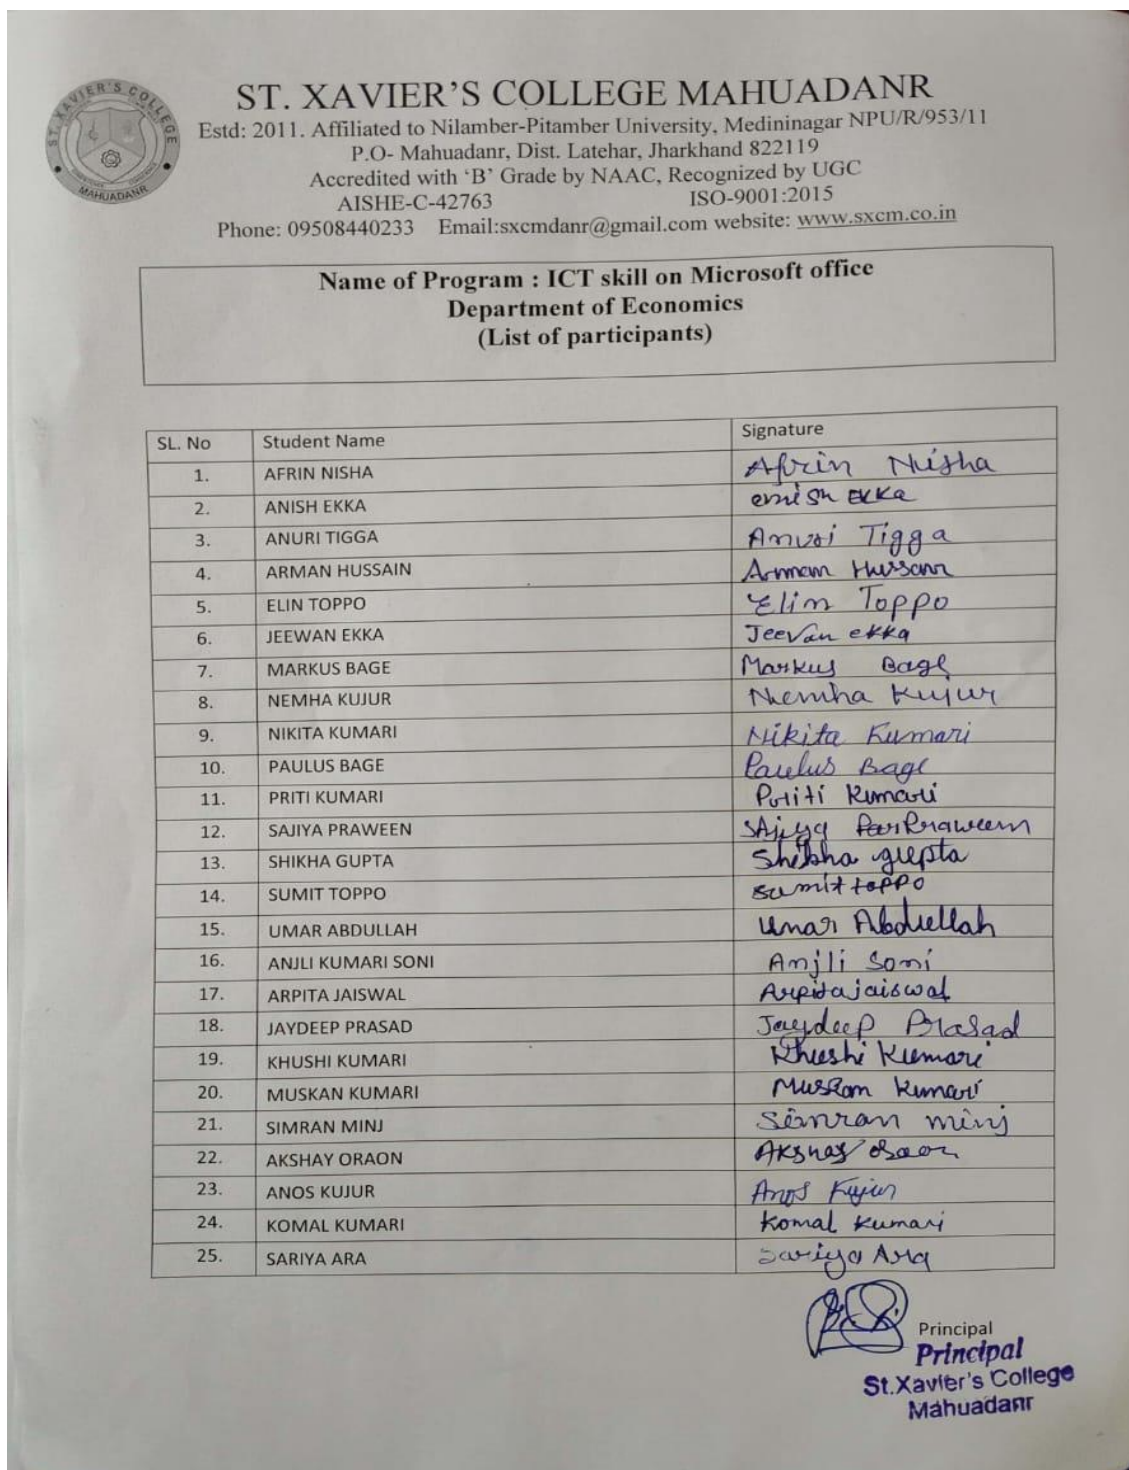 ST. XAVIER'S COLLEGE
MAHUADANR
ST. XAVIER'S COLLEGE MAHUADANR
Estd: 2011. Affiliated to Nilamber-Pitamber University, Medininagar NPU/R/953/11
P.O- Mahuadanr, Dist. Latehar, Jharkhand 822119
Accredited with ‘B’ Grade by NAAC, Recognized by UGC
AISHE-C-42763 ISO-9001:2015
Phone: 09508440233 Email:sxcmdanr@gmail.com website: www.sxcm.co.in
Name of Program : ICT skill on Microsoft office
Department of Economics
(List of participants)
SL. No Student Name Signature
1. AFRIN NISHA Afrin Nisha
2. ANISH EKKA anish EKKa
3. ANURI TIGGA Anuri Tigga
4. ARMAN HUSSAIN Arman
5. ELIN TOPPO Elin Toppo
6. JEEWAN EKKA Jeevan ekka
7. MARKUS BAGE Markus Bage
8. NEMHA KUJUR Nemha Kujur
9. NIKITA KUMARI Nikita Kumari
10. PAULUS BAGE Paulus Bage
11. PRITI KUMARI Priti Kumari
12. SAJIYA PRAWEEN SAjiya
13. SHIKHA GUPTA Shikha gupta
14. SUMIT TOPPO sumit toppo
15. UMAR ABDULLAH Umar Abdullah
16. ANJLI KUMARI SONI Anjli Soni
17. ARPITA JAISWAL Arpita jaiswal
18. JAYDEEP PRASAD Jaydeep Prasad
19. KHUSHI KUMARI Khushi Kumari
20. MUSKAN KUMARI Muskan Kumari
21. SIMRAN MINJ Simran minj
22. AKSHAY ORAON Akshay Oraon
23. ANOS KUJUR Anos Kujur
24. KOMAL KUMARI Komal Kumari
25. SARIYA ARA Sariya Ara
Principal
Principal
St.Xavier's College
Mahuadanr